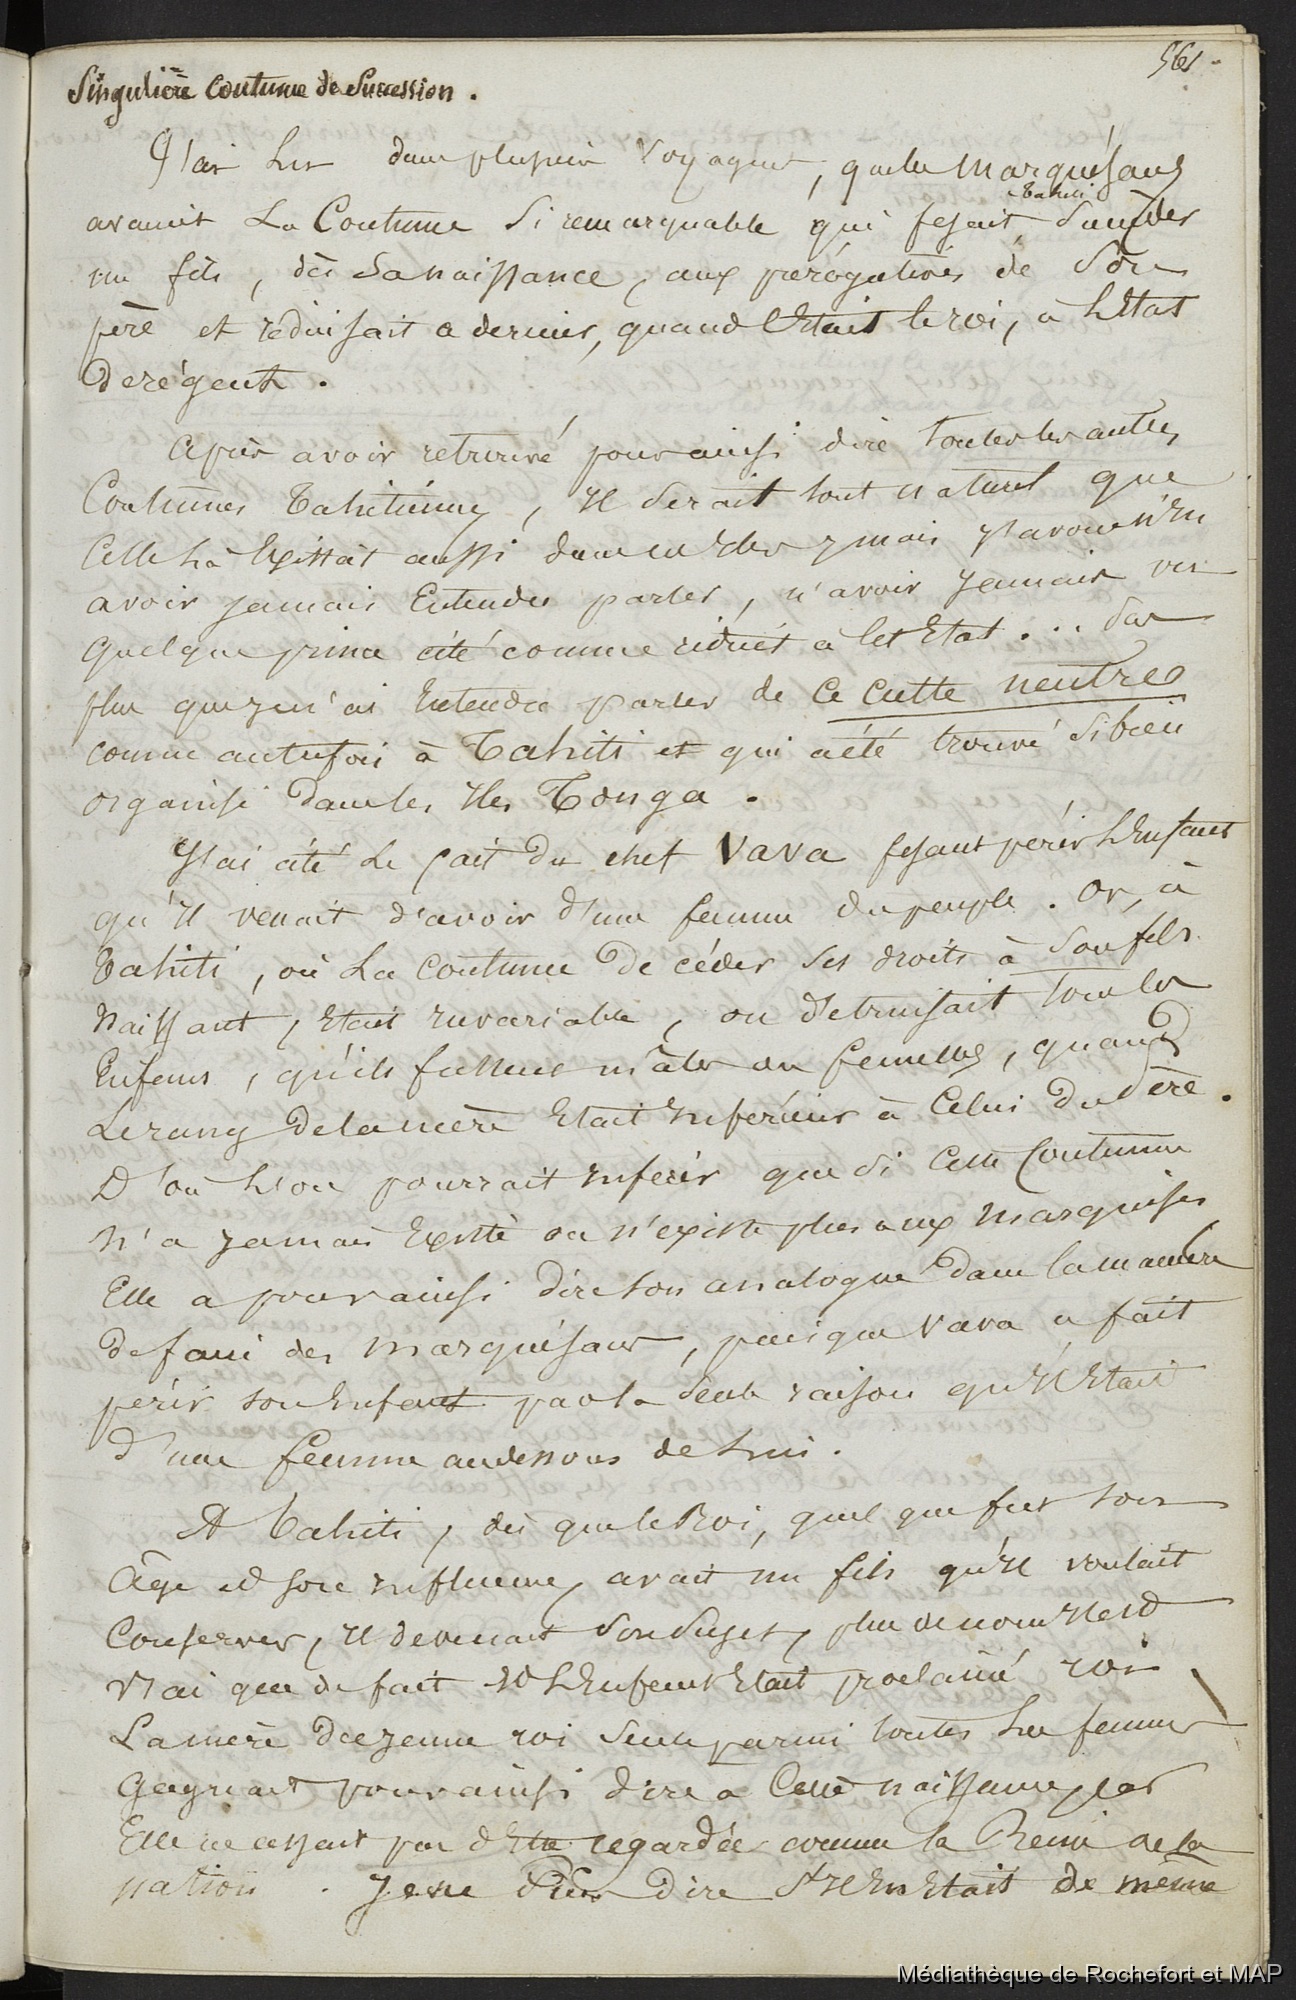 561.
Singulière Coutume de Succession.
J'ai lu dans plusieurs voyageurs, que les Marquésans
avaient la Coutume si remarquable qui fesait, Tahiti succéder
un fils, dès sa naissance, aux prérogatives de son
père et réduisait ce dernier, quand c'Etait le roi, à l'Etat
de régent.
Après avoir retrouvé pour ainsi dire toutes les autres
Coutumes Tahitiennes, Il serait tout naturel que
Celle là Existât aussi dans ces Iles, mais J'avoue n'En
avoir jamais Entendu parler, n'avoir jamais vu
quelque prince cité comme réduit à cet Etat... Pas
plus que je n'ai Entendu parler de ce culte neutre
connu autrefois à Tahiti et qui a été trouvé si bien
organisé dans les Iles Tonga.
J'ai cité le fait du chef Vava fesant périr l'Enfant
qu'Il venait d'avoir d'une femme du peuple. Or, à
Tahiti, où la coutume de céder ses droits à son fils
naissant, Etait Invariable, on détruisait tous les
Enfans, qu'ils fussent mâles ou femelles, quand
Le rang de la mère Etait Inférieur à Celui du Père.
D'où l'on pourrait Inférer que si cette Coutume
n'a jamais Existé ou n'existe plus aux Marquises,
Elle a pour ainsi dire son analogue dans la manière
de faire des Marquésans, puisque Vava a fait
périr son Enfant par la seule raison qu'Il Etait
d'une femme au dessous de lui.
A Tahiti, dès que le Roi, quel que fut son
Âge et son Influence, avait un fils qu'Il voulait
Conserver, Il devenait son sujet, plus de nom Il est
vrai que de fait et l'Enfant Etait proclamé roi
La mère du jeune roi seule parmi toutes les femmes
gagnait pour ainsi dire à cette naissance, car
Elle ne cessait pas d'Etre regardée comme la Reine de la
nation. Je ne puis dire s'Il En Etait de même
Médiathèque de Rochefort et MAP